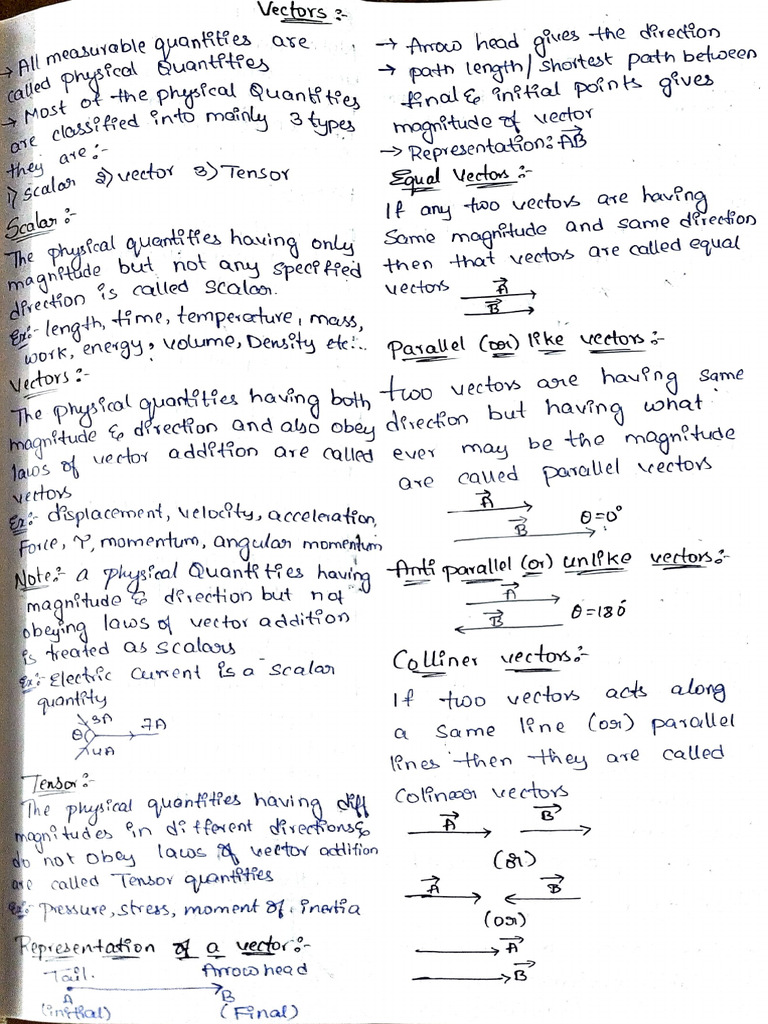 Vectors :-
→ All measurable quantities are
called physical Quantities
→ Most of the physical Quantities
are classified into mainly 3 types
they are :-
1) scalar 2) vector 3) Tensor
Scalar :-
The physical quantities having only
magnitude but not any specified
direction is called scalar.
Ex:- length, time, temperature, mass,
work, energy, volume, Density etc...
Vectors :-
The physical quantities having both
magnitude & direction and also obey
laws of vector addition are called
vectors
Ex:- displacement, velocity, acceleration,
Force, τ, momentum, angular momentum
Note:- a physical Quantities having
magnitude & direction but not
obeying laws of vector addition
is treated as scalars
Ex:- Electric current is a scalar
quantity
3A
7A
θ
4A
Tensor :-
The physical quantities having diff
magnitudes in different directions &
do not obey laws of vector addition
are called Tensor quantities
Ex:- Pressure, stress, moment of inertia
Representation of a vector :-
Tail. Arrow head
A B
(initial) (Final)
→ Arrow head gives the direction
→ path length/shortest path between
final & initial points gives
magnitude of vector
→ Representation: A⃗B⃗
Equal Vectors :-
If any two vectors are having
Same magnitude and same direction
then that vectors are called equal
vectors A⃗
B⃗
Parallel (or) like vectors :-
two vectors are having same
direction but having what
ever may be the magnitude
are called parallel vectors
A⃗
B⃗ θ=0°
Anti parallel (or) unlike vectors :-
A⃗
B⃗ θ=180°
Colliner vectors :-
If two vectors acts along
a same line (or) parallel
lines then they are called
Colinear vectors
A⃗ B⃗
(or)
A⃗ B⃗
(or)
A⃗
B⃗